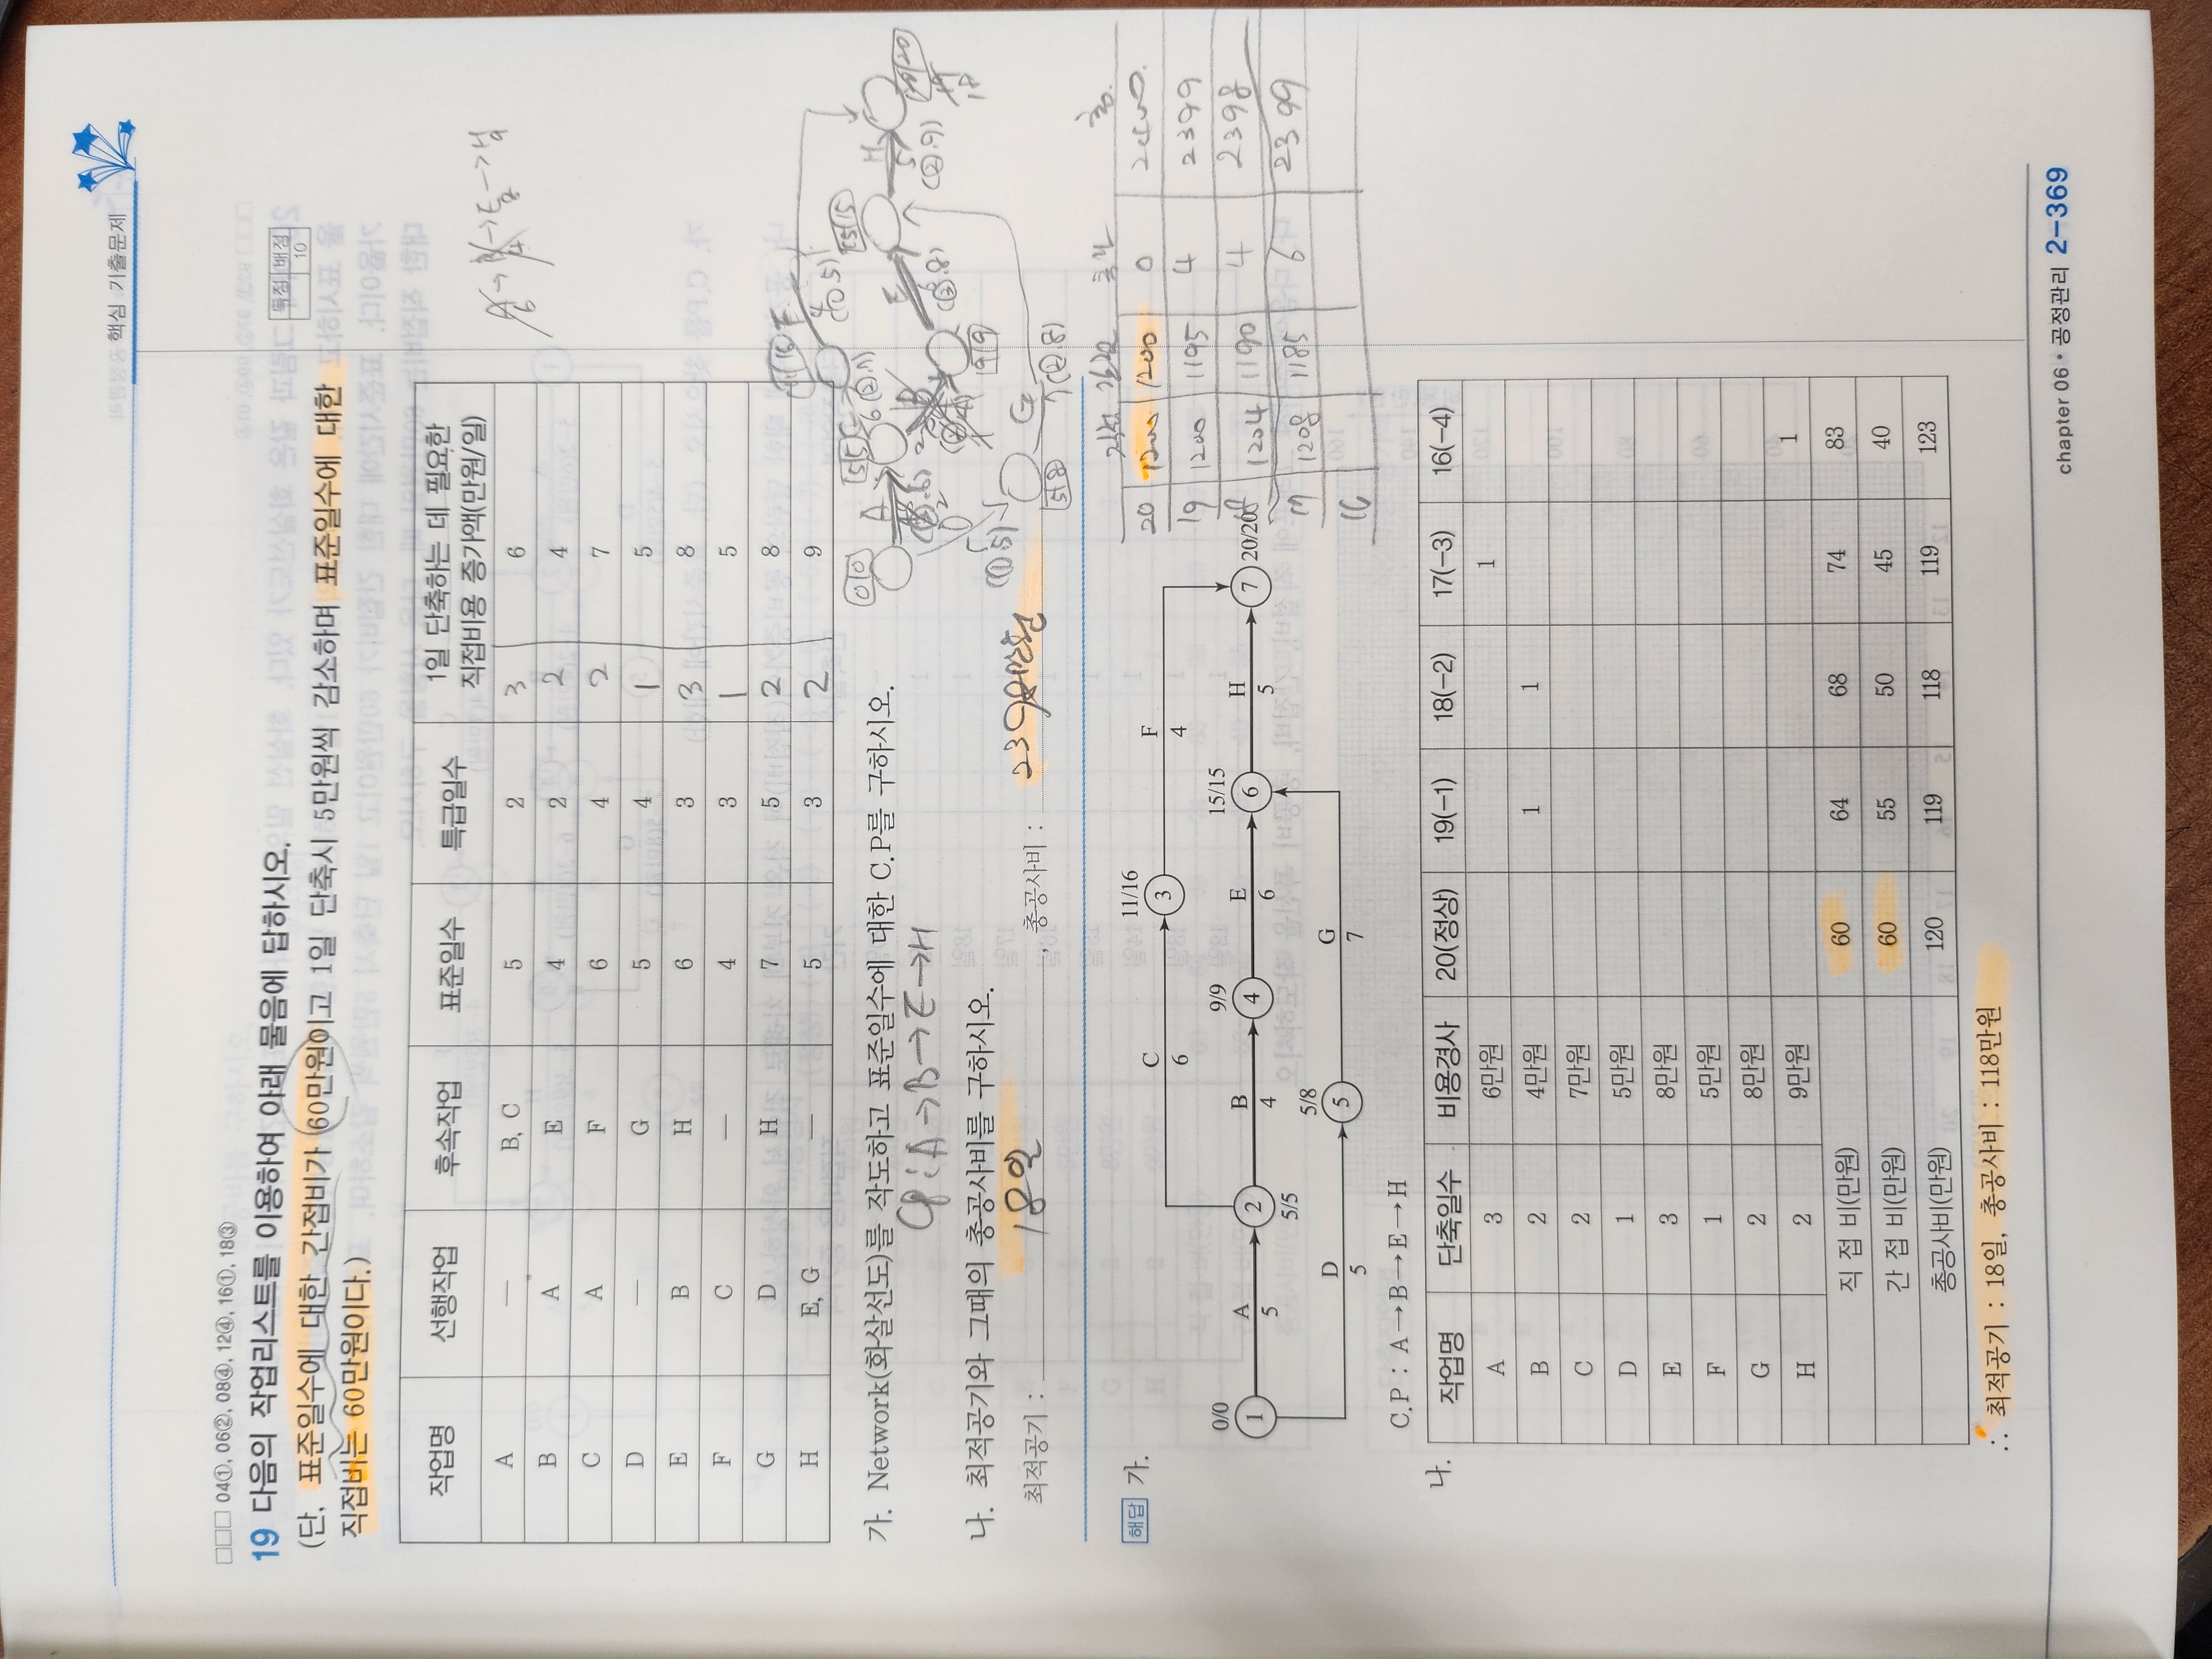 핵심 기출문제
□□□ 04①, 06②, 08④, 12④, 16①, 18③
19 다음의 작업리스트를 이용하여 아래 물음에 답하시오.
득점 배점
10
(단, 표준일수에 대한 간접비가 60만원이고 1일 단축시 5만원씩 감소하며 표준일수에 대한
직접비는 60만원이다.)
작업명 선행작업 후속작업 표준일수 특급일수 1일 단축하는 데 필요한 직접비용 증가액(만원/일)
A — B, C 5 2 3 6
B A E 4 2 2 4
C A F 6 4 2 7
D — G 5 4 1 5
E B H 6 3 3 8
F C — 4 3 1 5
G D H 7 5 2 8
H E, G — 5 3 2 9
가. Network(화살선도)를 작도하고 표준일수에 대한 C.P를 구하시오.
CP : A→B→E→H
나. 최적공기와 그때의 총공사비를 구하시오.
최적공기 : 18일 , 총공사비 :
20 1200 1200 0
19 1200 1195 4 2399
1204 1190 4 2398
17 1208 1185 6 2399
16
해답 가.
0/0 5/5 11/16 9/9 5/8 15/15 20/20
1 2 3 4 5 6 7
A 5
B 4
C 6
D 5
E 6
F 4
G 7
H 5
C.P : A→B→E→H
나.
작업명 단축일수 비용경사 20(정상) 19(−1) 18(−2) 17(−3) 16(−4)
A 3 6만원 1
B 2 4만원 1 1
C 2 7만원
D 1 5만원
E 3 8만원
F 1 5만원
G 2 8만원
H 2 9만원 1
직 접 비(만원) 60 64 68 74 83
간 접 비(만원) 60 55 50 45 40
총공사비(만원) 120 119 118 119 123
∴ 최적공기 : 18일, 총공사비 : 118만원
chapter 06 • 공정관리 2−369